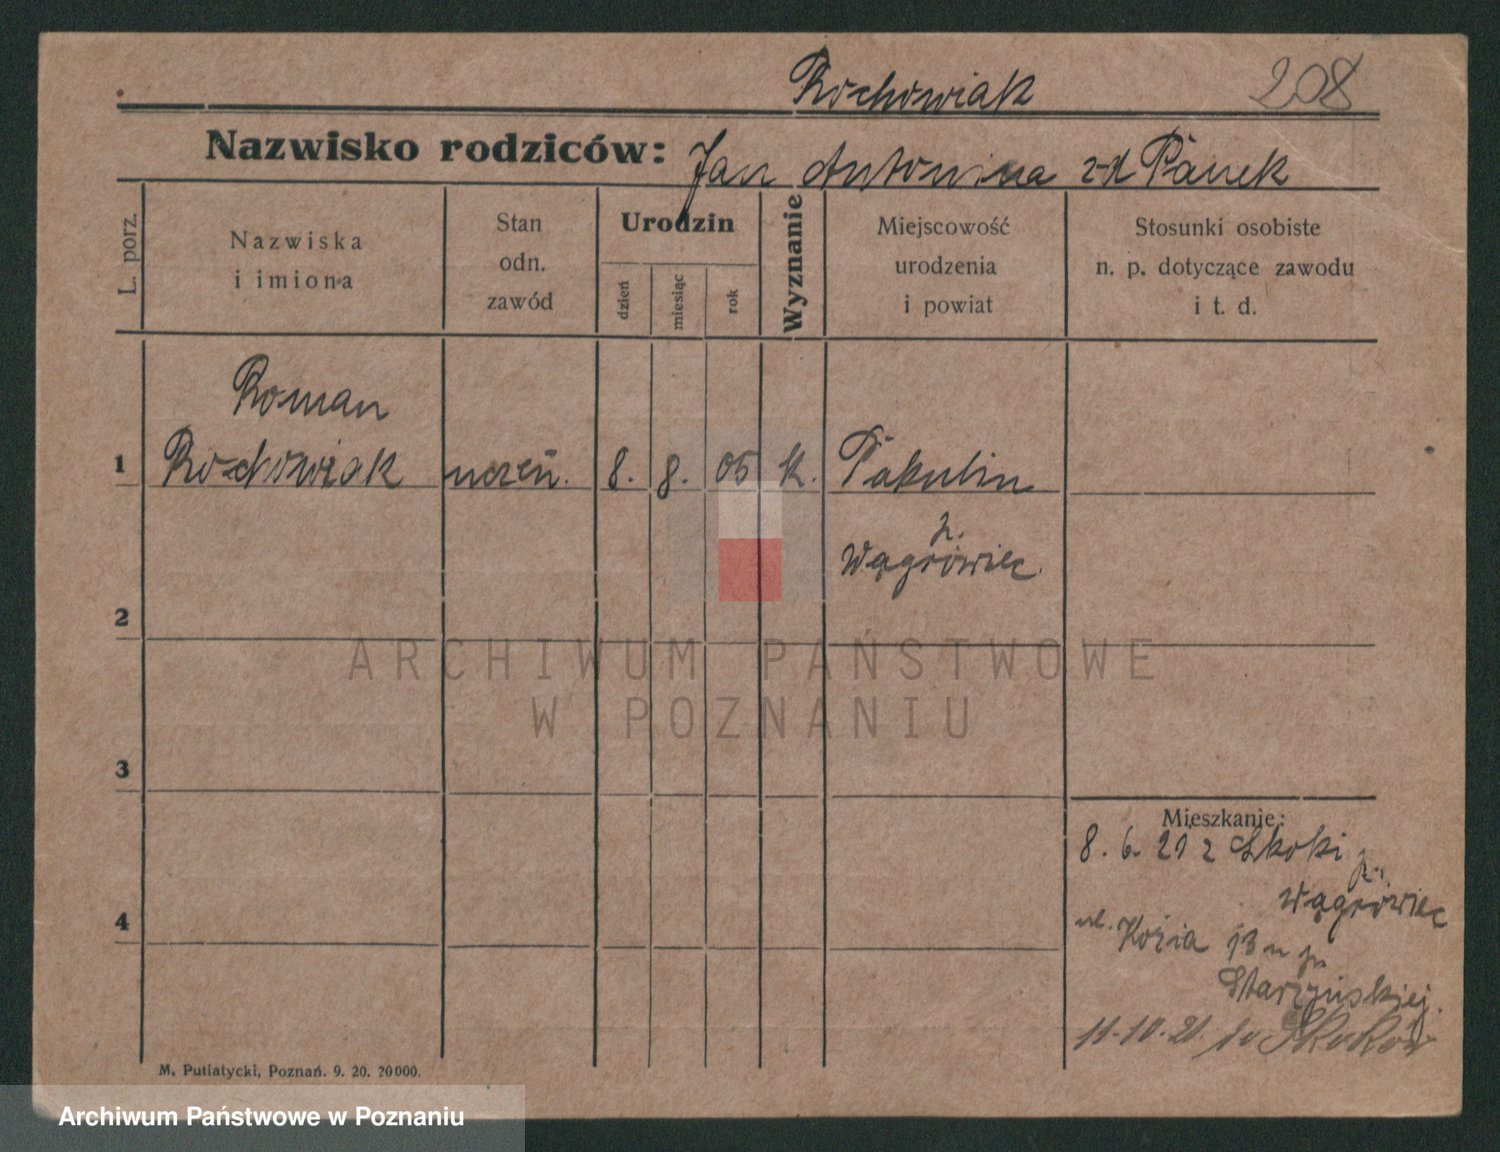 Rochowiak 208
Nazwisko rodziców: Jan Antonina z d Panek
L. porz.
Nazwiska
i imiona
Stan
odn.
zawód
Urodzin
dzień
miesiąc
rok
Wyznanie
Miejscowość
urodzenia
i powiat
Stosunki osobiste
n. p. dotyczące zawodu
i t. d.
Roman
1 Rochowiak uczeń. 8. 8. 05 k. Pakulin
Wągrówiec
2
ARCHIWUM PAŃSTWOWE
W POZNANIU
3
Mieszkanie:
8. 6. 21 z Skoki p.
Wągrówiec
4
ul. Kozia 13 u p.
Starzyńskiej.
11.10.21. do Skoków
M. Putiatycki, Poznań. 9. 20. 20000.
Archiwum Państwowe w Poznaniu